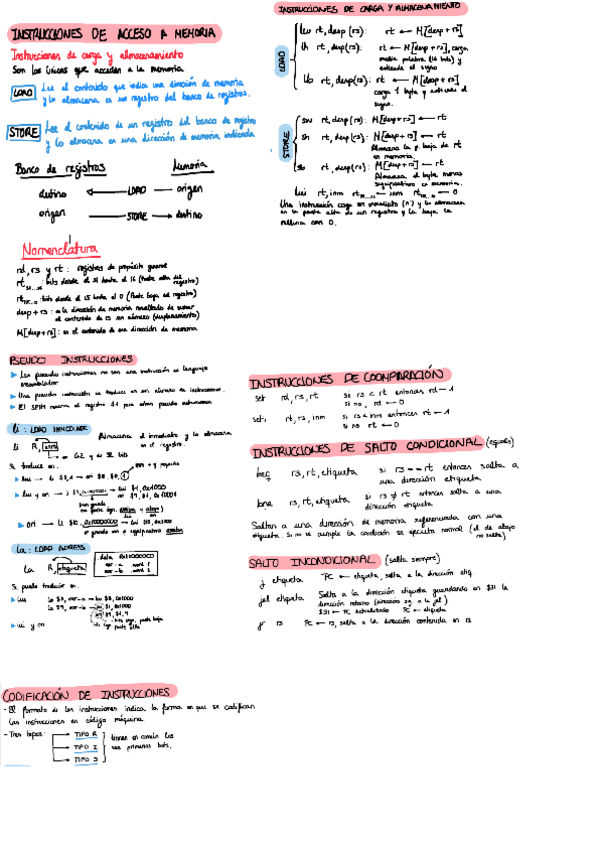 INSTRUCCIONES DE ACCESO A MEMORIA
Instrucciones de carga y almacenamiento
Son las únicas que acceden a la memoria
LOAD Lee el contenido que indica una dirección de memoria
y lo almacena en un registro del banco de registros.
STORE Lee el contenido de un registro del banco de registro
y lo almacena en una dirección de memoria indicada
Banco de registros Memoria
destino LOAD origen
origen STORE destino
Nomenclatura
rd, rs y rt: registros de propósito general
rt31...16: bits desde el 31 hasta el 16 (Parte alta del registro)
rt15...0: bits desde el 15 hasta el 0 (Parte baja del registro)
desp + rs: es la dirección de memoria resultado de sumar
el contenido de rs un número (desplazamiento)
M[desp+rs]: es el contenido de una dirección de memoria.
PSEUDO INSTRUCCIONES
Las pseudo instrucciones no son una instrucción en lenguaje
ensamblador
Una pseudo instrucción se traduce en un número de instrucciones.
El SPIM reserva el registro $1 para
li: LOAD INMEDIATE
li R, inm Almacena el inmediato y lo almacena
en el registro.
Se traduce en:
lui y ori
ori
la: LOAD ADRESS
la R, etiqueta
.data 0x10000000
Se puede traducir en:
lui
lui y ori
CODIFICACIÓN DE INSTRUCCIONES
- El formato de las instrucciones indica la forma en que se codifican
las instrucciones en código máquina
- Tres tipos: TIPO R
TIPO I
TIPO J
tienen en común los
seis primeros bits.
INSTRUCCIONES DE CARGA Y ALMACENAMIENTO
LOAD
lw rt, desp(rs): rt ← M[desp + rs]
lh rt, desp(rs): rt ← M[desp + rs], carga
media palabra (16 bits) y
extiende el signo
lb rt, desp(rs): rt ← M[desp + rs]
carga 1 byte y extiende el
signo.
STORE
sw rt, desp(rs): M[desp+rs] ← rt
sh rt, desp(rs): M[desp+rs] ← rt
Almacena la p. baja de rt
en memoria.
sb rt, desp(rs): M[desp+rs] ← rt
Almacena el byte menos
significativo en memoria.
lui rt, inm rt31...16 ← inm rt15...0 ← 0
Una instrucción coge un inmediato (n) y lo almacena
en la parte alta de un registro y la baja la
rellena con 0.
INSTRUCCIONES DE COOMPARACIÓN
slt rd, rs, rt Si rs < rt entonces rd ← 1
si no, rd ← 0
slti rt, rs, inm si rs < inm entonces rt ← 1
si no rt ← 0
INSTRUCCIONES DE SALTO CONDICIONAL (iguales)
beq rs, rt, etiqueta si rs == rt entonces salta a
una dirección etiqueta
bne rs, rt, etiqueta si rs ≠ rt entonces salta a una
dirección etiqueta
Saltan a una dirección de memoria referenciada con una
etiqueta. Si no se cumple la condición se ejecuta normal (el de abajo
no salta)
SALTO INCONDICIONAL (salta siempre)
j etiqueta PC ← etiqueta, salta a la dirección etiq.
jal etiqueta Salta a la dirección etiqueta guardando en $31 la
dirección retorno (dirección sig. a la jal)
$31 ← PC actualizado PC ← etiqueta
jr rs PC ← rs, salta a la dirección contenida en rs